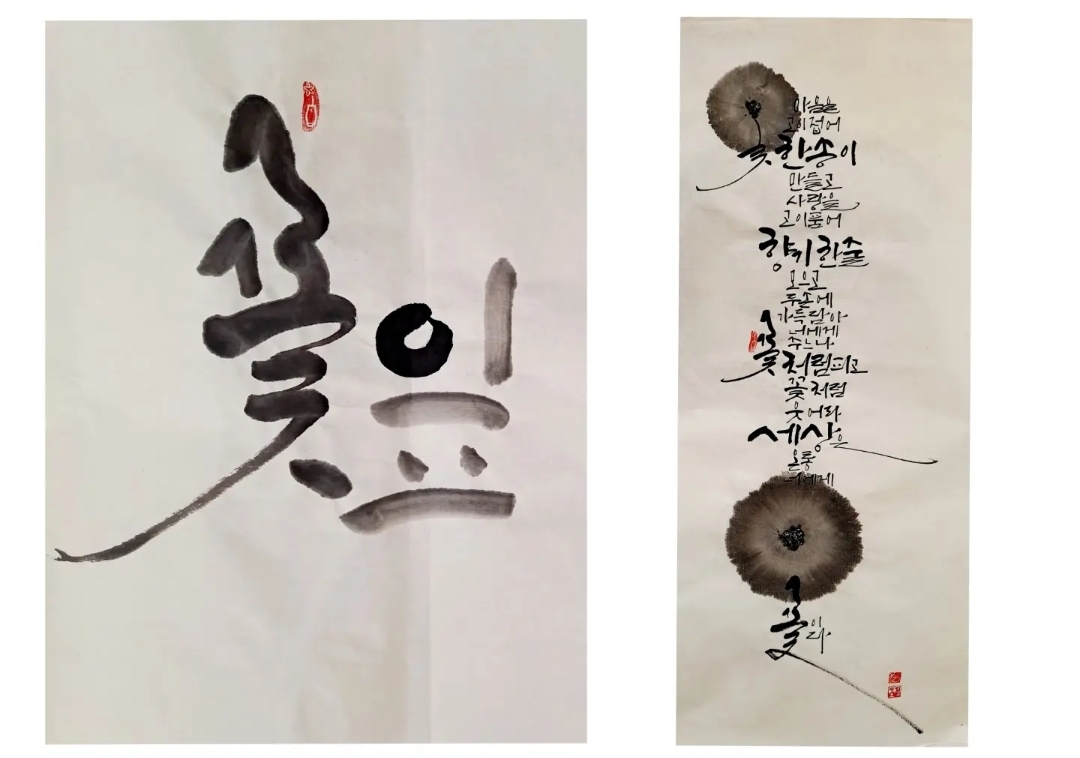 꽃잎
마음을
고이접어
꽃한송이
만들고
사랑을
고이품어
향기한줄
모으고
두손에
가득담아
너에게
주느나
꽃처럼피고
꽃처럼
웃어라
세상은
온통
너에게
꽃이다